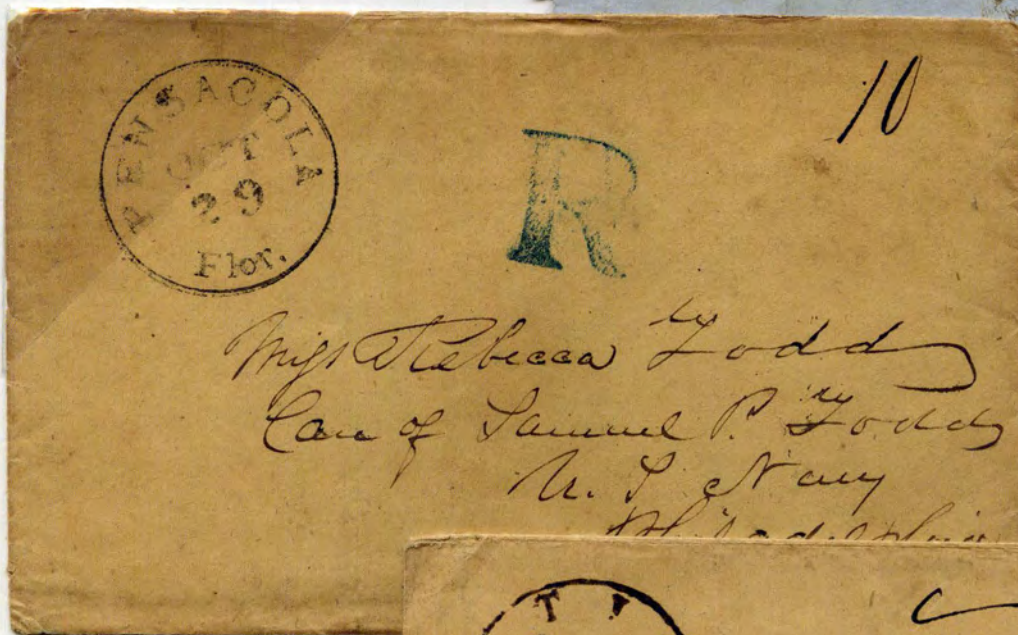 PENSACOLA
OCT
29
Flor.
10
R
Miss Rebecca Todd
Care of Samuel P. Todd
U. S. Navy
Philadelphia
T Y